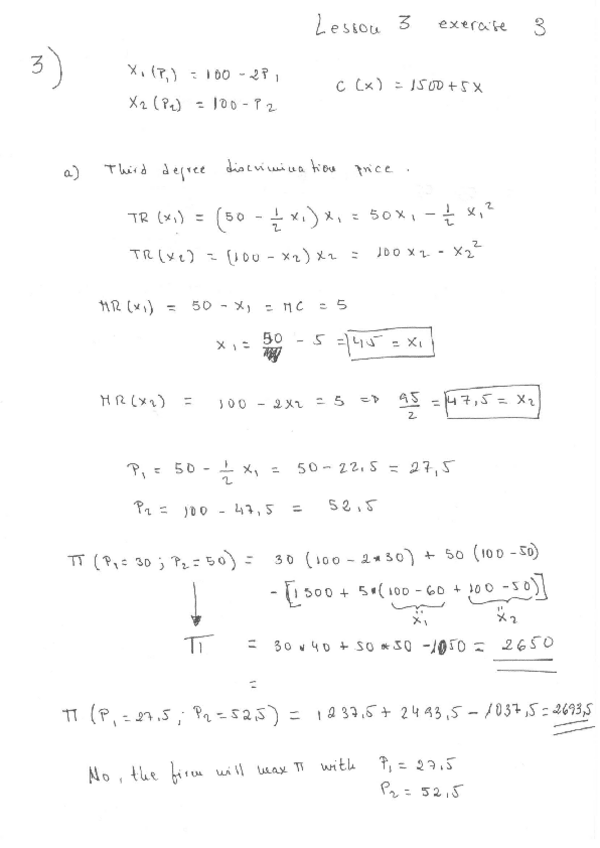 Lesson 3 exercise 3
3) X₁(P₁) = 100 - 2P₁
C(x) = 1500 + 5x
X₂(P₂) = 100 - P₂
a) Third degree discrimination price.
TR(x₁) = (50 - 1/2 x₁) x₁ = 50x₁ - 1/2 x₁²
TR(x₂) = (100 - x₂) x₂ = 100x₂ - x₂²
MR(x₁) = 50 - x₁ = MC = 5
x₁ = 50 - 5 = 45 = x₁
MR(x₂) = 100 - 2x₂ = 5 => 95/2 = 47,5 = x₂
P₁ = 50 - 1/2 x₁ = 50 - 22,5 = 27,5
P₂ = 100 - 47,5 = 52,5
π(P₁ = 30 ; P₂ = 50) = 30 (100 - 2*30) + 50 (100 - 50)
- [1500 + 5*(100 - 60 + 100 - 50)]
x₁ x₂
π = 30*40 + 50*50 - 1050 = 2650
=
π(P₁ = 27,5 ; P₂ = 52,5) = 1237,5 + 2493,5 - 1037,5 = 2693,5
No, the firm will max π with P₁ = 27,5
P₂ = 52,5